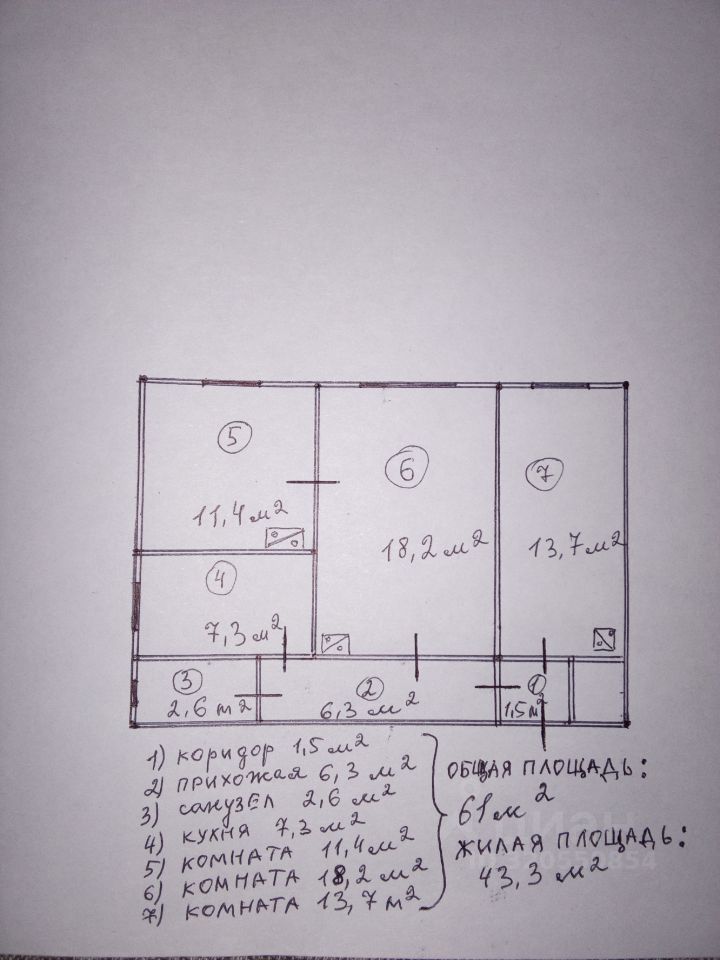 5
6
7
11,4 м2
18,2 м2
13,7 м2
4
7,3 м2
3
2
1
2,6 м2
6,3 м2
1,5 м2
1) коридор 1,5 м2
2) прихожая 6,3 м2
3) санузел 2,6 м2
4) кухня 7,3 м2
5) комната 11,4 м2
6) комната 18,2 м2
7) комната 13,7 м2
ОБЩАЯ ПЛОЩАДЬ:
61 м2
ЖИЛАЯ ПЛОЩАДЬ:
43,3 м2